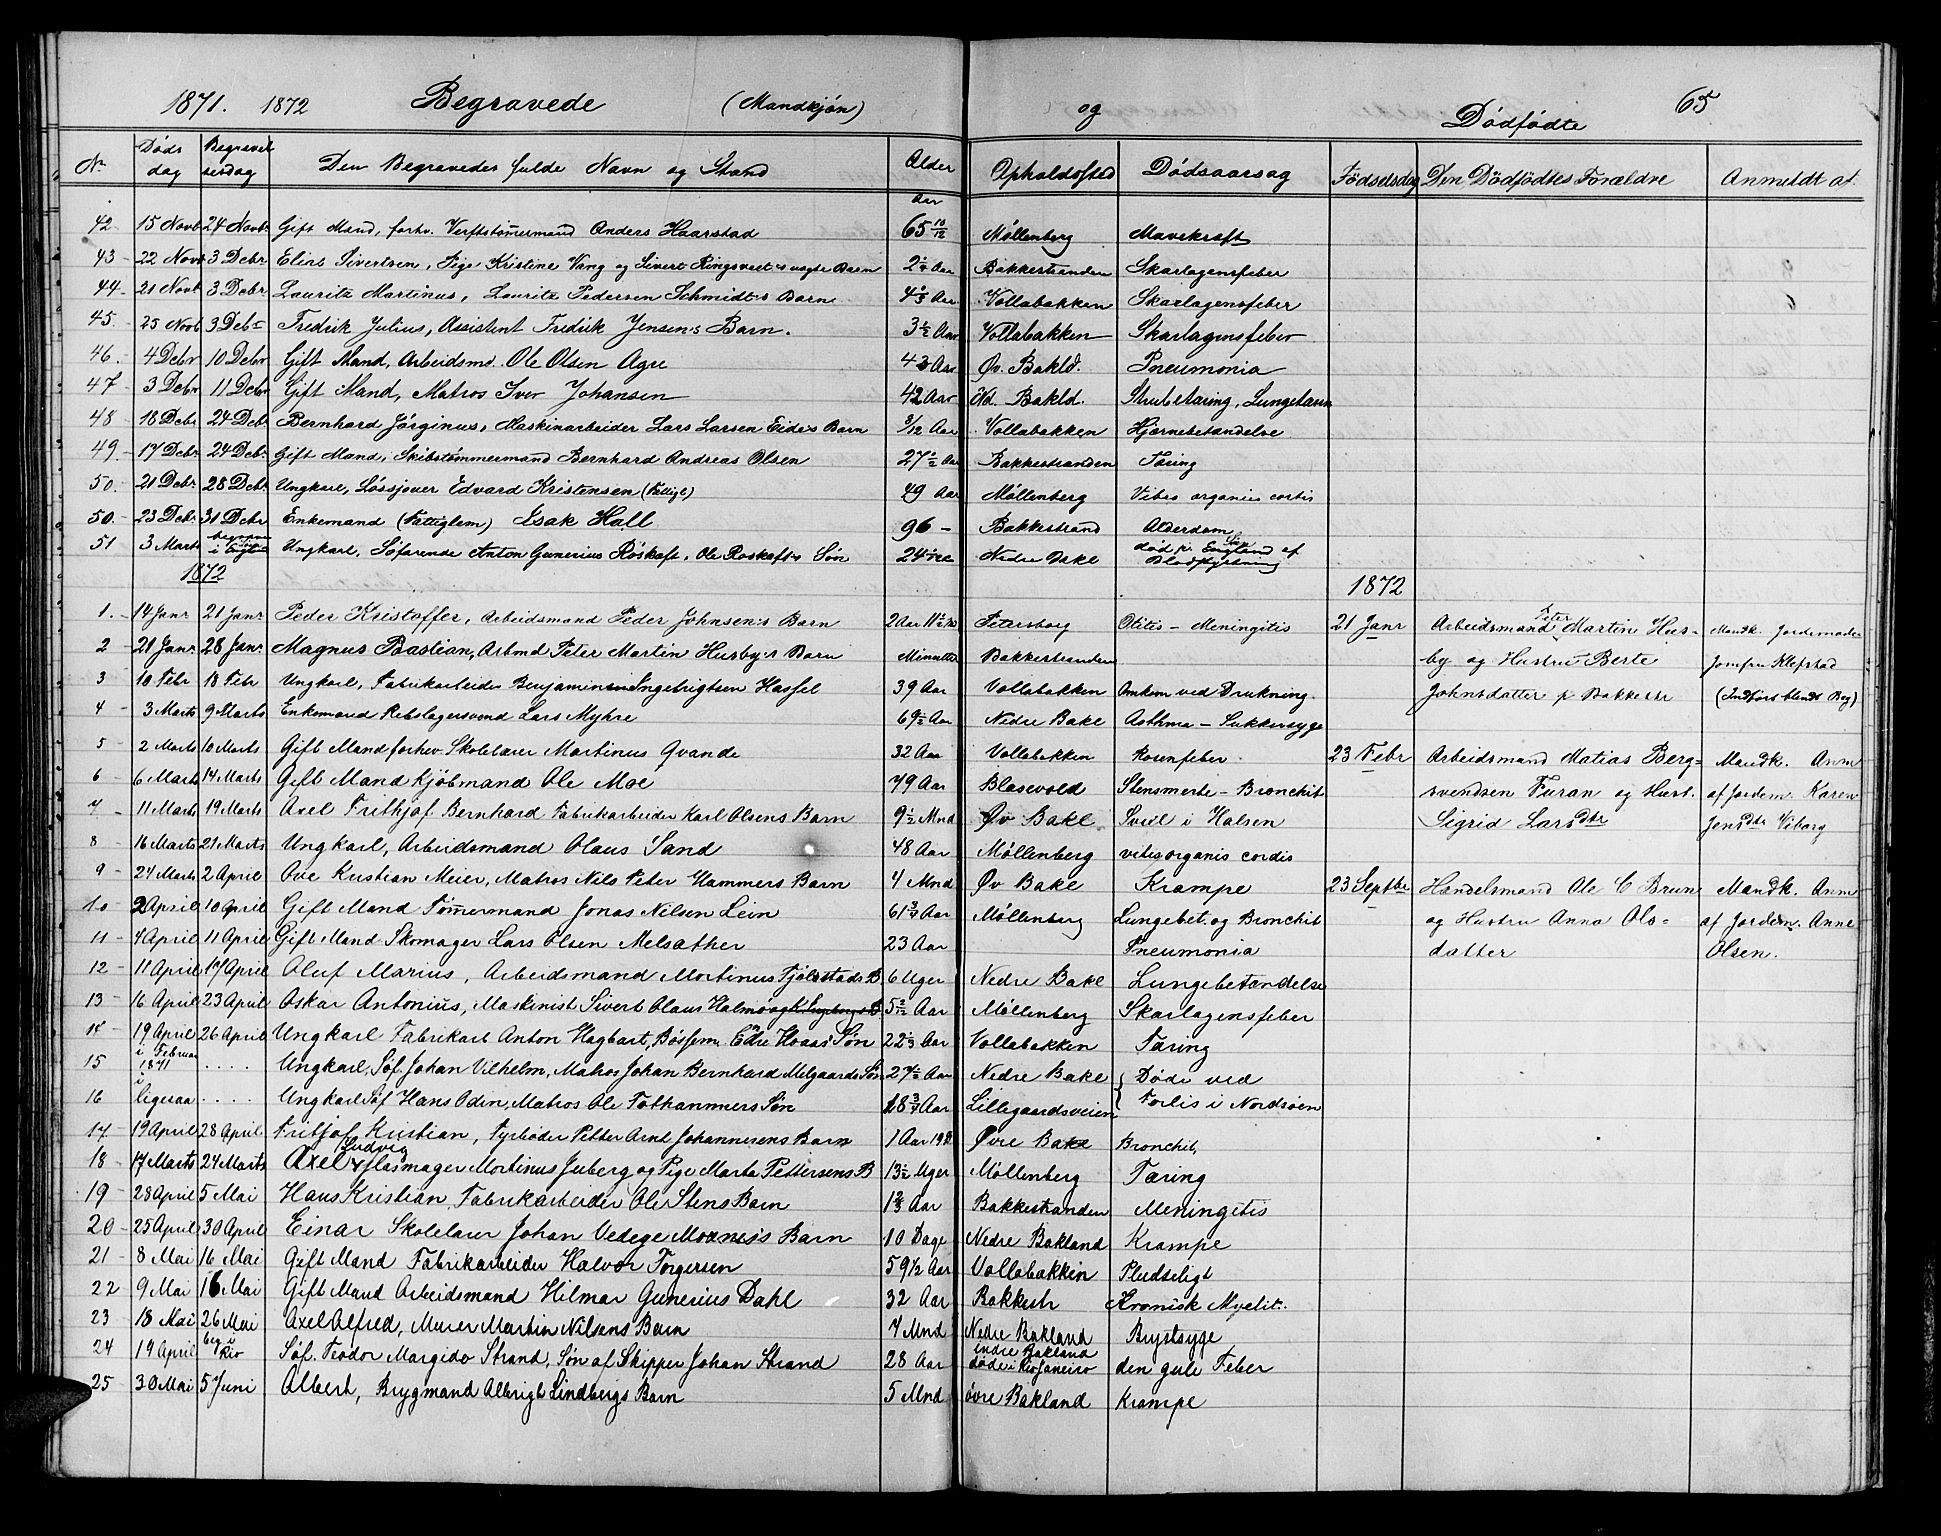 1871. 1872 Begravede (Mandkjón) og Dódfódte 65
Nr Dóds dag Begravel sesdag Den Begravedes fulde Navn og Stand Alder Opholdssted Dódsaarsag Fódselsdag Den Dódfódtes Forældre Anmeldt af
Aar
42 15 Novb 24 Novbr Gift Mand, forhv. Verftstómermand Anders Haarstad 65 10/12 Móllenberg Mavekræft
43 22 Novb 3 Debr Elias Sivertsen, Pige Kristine Vang og Sivert Ringsveet's uægte Barn 2 1/4 Aar Bakkestranden Skarlagensfeber
44 21 Novb 3 Debr Lauritz Martinus, Lauritz Pedersen Schmidt's Barn 4 1/3 Aar Vollabakken Skarlagensfeber
45. 25 Novb 3 Debr Fredrik Julius, Assistent Fredrik Jensen's Barn. 3 1/2 Aar Vollabakken Skarlagensfeber
46. 4 Debr 10 Debr Gift Mand, Arbeidsmd. Ole Olsen Agre 43 Aar Øv. Bakld. Pneumonia
47 3 Debr 11 Debr Gift Mand, Matros Iver Johansen 42 Aar Nd. Bakld. Strubetæring, Lungetæring
48 18 Debr 24 Debr Bernhard Jórginus, Maskinarbeider Lars Larsen Eide's Barn 3/12 Aar Vollabakken Hjernebetændelse
49. 17 Debr 24 Debr Gift Mand, Skibstómmermand Bernhard Andreas Olsen 27 1/2 Aar Bakkestranden Tæring
50. 21 Debr 28 Debr Ungkarl, Lóssjover Edvard Kristensen (Fattigl) 49 Aar Móllenberg Vitis organis cordis
50. 23 Debr 31 Debr Enkemand (Fattiglem) Esak Hall 96 - Bakkestrand Alderdom
51 3 Marts begraven i Engl Ungkarl, Sófarende Anton Gunerius Róskaft, Ole Roskaft's Són 24 Nedre Bakl dód p. England af Blodstyrtning
1872 1872
1. 14 Janr 21 Janr Peder Kristoffer, Arbeidsmand Peder Johnsen's Barn 2 Aar Petersborg Otitis - Meningitis 21 Janr Arbeidsmand Peter Martin Hus- Mandk. Jordemoder
2 21 Janr 28 Janr Magnus Bastian, Arbmd Peter Martin Husby's Barn Minutter Bakkestranden by og Hustru Berte Jomfru Klefstad
3 10 Febr 18 Febr Ungkarl, Fabrikarbeider Benjamin Ingebrigtsen Hassel 39 Aar Vollabakken Omkom ved Drukning. Johnsdatter p Bakkestr (Indfórt blandt Beg)
4 3 Marts 9 Marts Enkemand Rebslagersvend Lars Myhre 69 1/2 Aar Nedre Bakl Asthma - Sukkersyge
5 2 Marts 10 Marts Gift Mand forhev. Skolelærer Martinus Qvande 32 Aar Vollabakken Rosenfeber 23 Febr Arbeidsmand Matias Berg- Mandk. Anm
6 6 Marts 14 Marts Gift Mand Kjóbmand Ole Moe 79 Aar Blæsevold Stensmerte - Bronchit svendsen Furan og Hust. af Jordem. Karen
7 11 Marts 19 Marts Axel Frithjof Bernhard Fabrikarbeider Karl Olsens Barn 9 1/2 Mnd Øv Bakl Sviel i Halsen Sigrid Larsdtr Jensdtr Viborg
8 16 Marts 21 Marts Ungkarl, Arbeidsmand Olaus Sand 48 Aar Móllenberg vitis organis cordis
9 24 Marts 2 April Ove Kristian Meier, Matros Nils Peter Hammers Barn 4 Mnd Øv Bakl Krampe 23 Septbr Handelsmand Ole C Brun Mandk. Anm
10 2 April 10 April Gift Mand Tómermand Jonas Nilsen Lein 61 3/4 Aar Móllenberg Lungebet. og Bronchit og Hustru Anna Ols- af Jordem. Anne
11 4 April 11 April Gift Mand Skomager Lars Olsen Melsæther 23 Aar Pneumonia datter Olsen.
12 11 April 17 April Oluf Marius, Arbeidsmand Martinus Fjölstads B 6 Uger Nedre Bakl Lungebetændelse
13 16 April 23 April Oskar Antonius, Maskinist Sivert Olaus Halmó 5 2/12 Aar Móllenberg Skarlagensfeber
14 19 April 26 April Ungkarl Fabrikarb Anton Hagbart, Bóssem. Edre Haas' Són 22 1/3 Aar Vollabakken Tæring
15 i Februar 1871 . . . . Ungkarl, Sóf. Johan Vilhelm, Matros Johan Bernhard Melgaards Són 27 1/2 Aar Nedre Bakl Døde ved
16 ligesaa . . . . Ungkarl Sóf Hans Odin, Matros Ole Tothammers Són 18 3/4 Aar Lillegaardsveien Forlis i Nordsóen
17 19 April 28 April Fritjof Kristian, Fyrbóder Petter Arnt Johannesens Barn 1 Aar Øvre Bakl Bronchit,
18 17 Marts 24 Marts Axel Ludvig Glasmager Martinus Juberg og Pige Marta Pettersens B 13 1/2 Uger Móllenberg Tæring
19 28 April 5 Mai Hans Kristian, Fabrikarbeider Ole Stens Barn 1 2/3 Aar Bakkestranden Meningitis
20 25 April 30 April Einar Skolelærer Johan Vedege Moxness Barn 10 Dage Nedre Bakland Krampe
21 8 Mai 16 Mai Gift Mand Fabrikarbeider Halvor Torgersen 59 1/2 Aar Vollabakkin Pludseligt
22 9 Mai 16 Mai Gift Mand Arbeidsmand Hilmar Gunerius Dahl 32 Aar Bakkestr Kronisk Myelit.
23 18 Mai 26 Mai Axel Alfred, Murer Martin Nilsens Barn 7 Mnd Nedre Bakland Brystsyge
24 19 April beg i Rio Sóf. Teodor Margido Strand, Són af Skipper Johan Strand 28 Aar Nedre Bakland døde i Rio Janeiro den gule Feber
25 30 Mai 5 Juni Albert, Brygmand Albrigt Lindbergs Barn 5 Mnd óvre Bakland Krampe